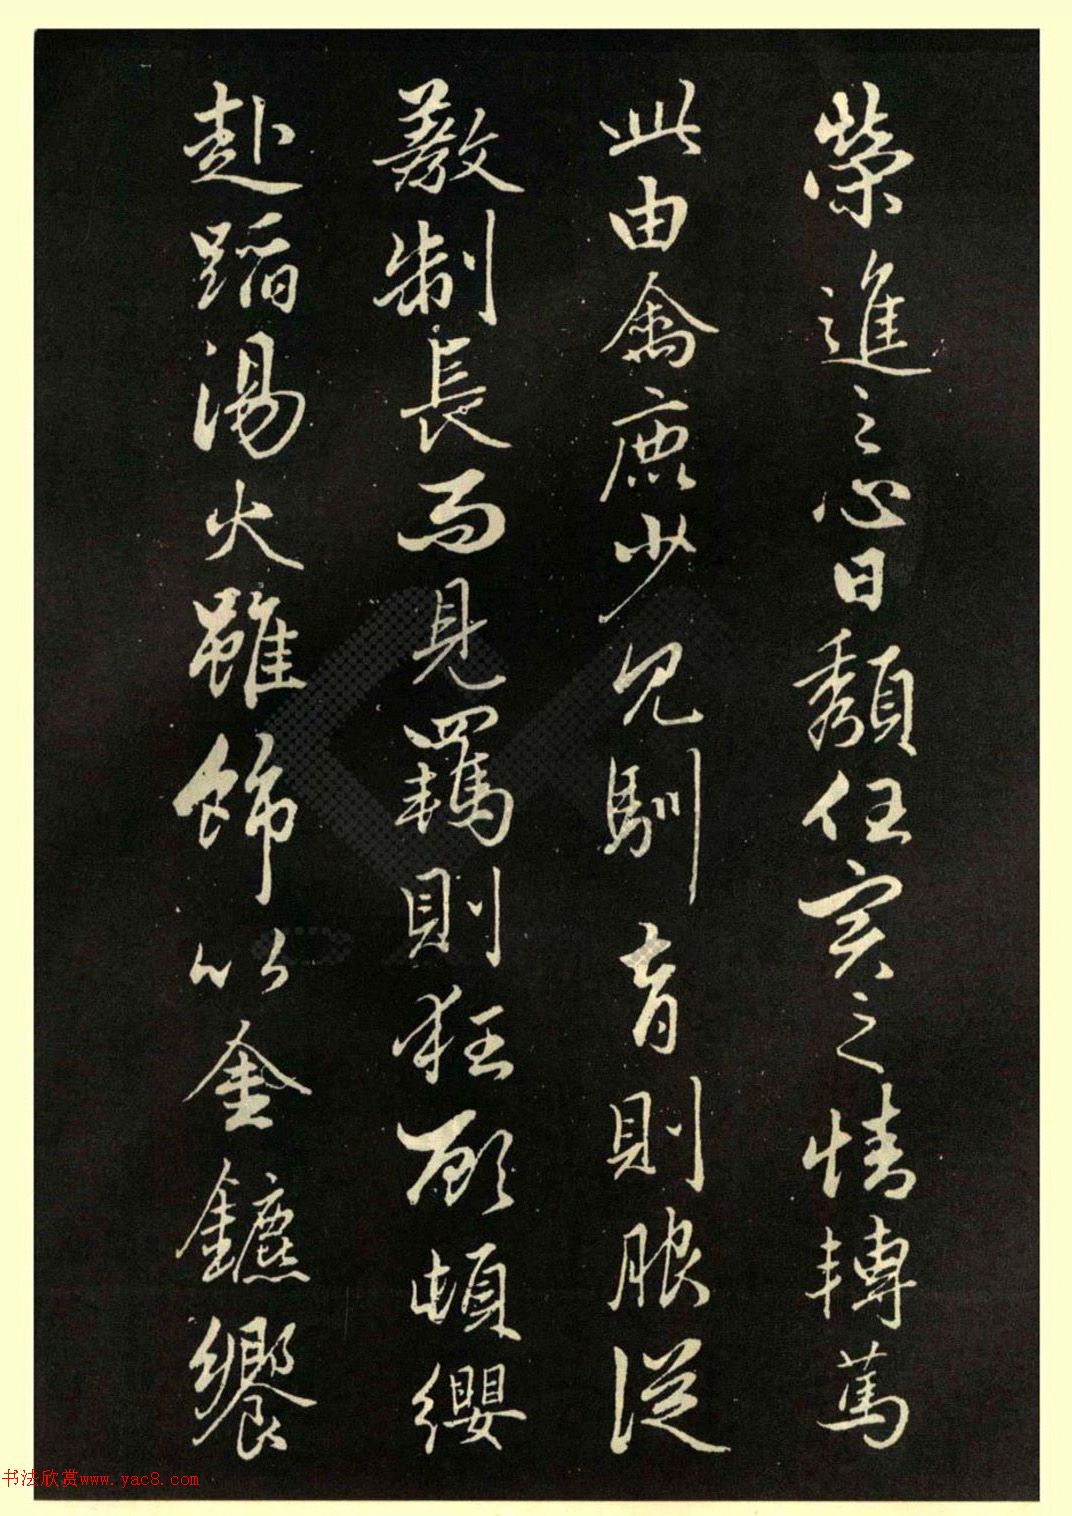 榮進之心日頹任實之情轉篤
此由禽鹿少見馴育則服從
教制長而見羈則狂顧頓纓
赴蹈湯火雖飾以金鑣饗
书法欣赏www.yac8.com